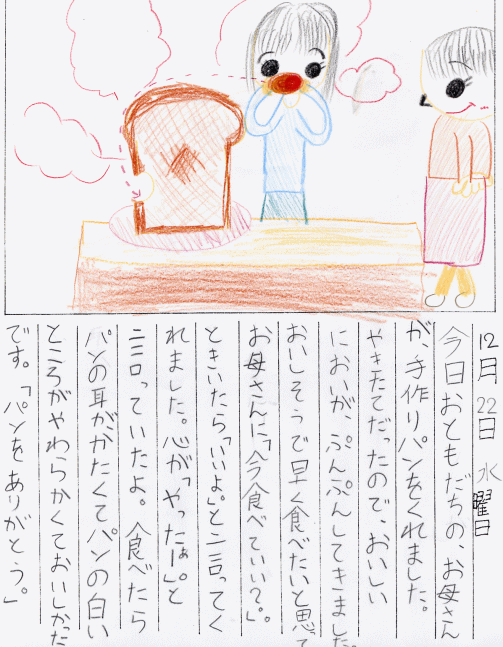 12月22日 水曜日
今日おともだちの、お母さん
が、手作りパンをくれました。
やきたてだったので、おいしい
においが、ぷんぷんしてきました。
おいしそうで早く食べたいと思って
お母さんに「今食べていい？」。
ときいたら「いいよ。」と言ってく
れました。心が「やったぁー」。と
言っていたよ。食べたら
パンの耳がかたくてパンの白い
ところがやわらかくておいしかった
です。「パンをありがとう。」